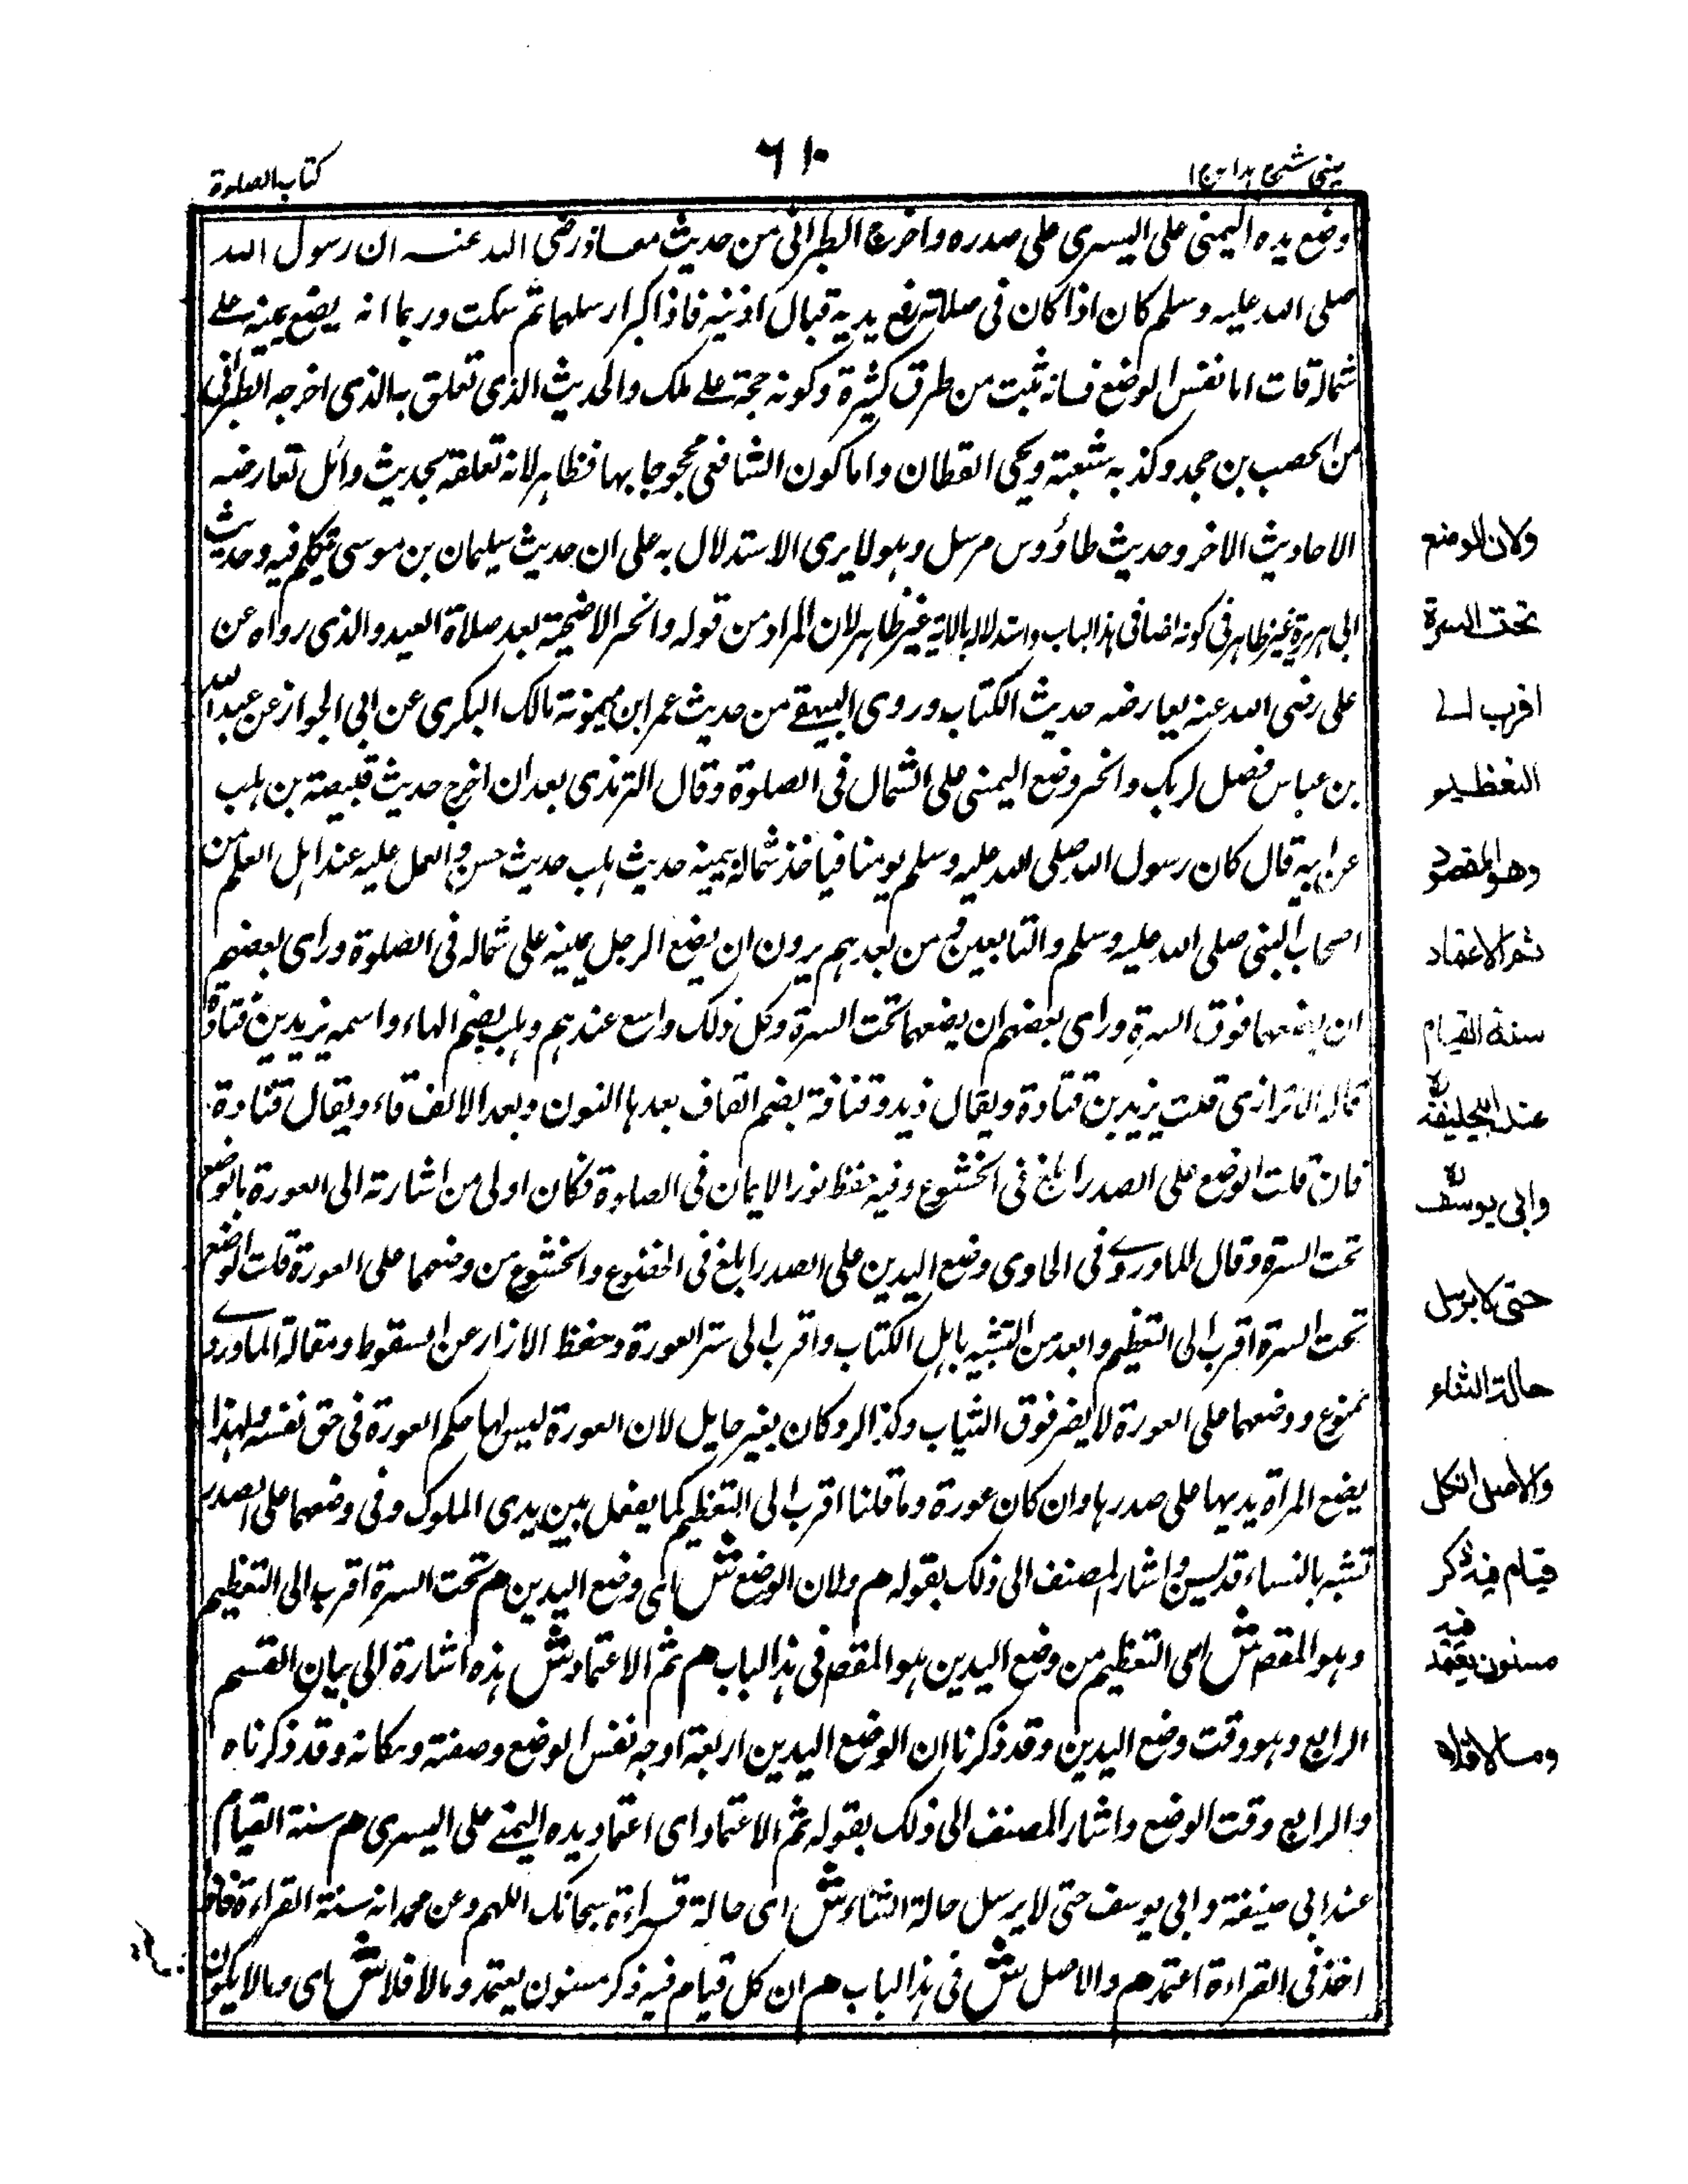 عینی شرح ہدایہ ج ۱
٦١٠
کتاب الصلوة
وضع یده الیمنی علی الیسری علی صدره واخرج الطبرانی من حدیث معاذ رضی الله عنه ان رسول الله
صلی الله علیه وسلم کان اذا کان فی صلاته رفع یدیه قبال اذنیه فاذا کبر ارسلهما ثم سکت وربما انه یضع یمینه علے
شماله قلت اما نفس الوضع فانه ثبت من طرق کثیرة وکونه حجة علے ملک والحدیث الذی تعلق به الذی اخرجه الطبرانی
من الحصب بن جحدر وکذبه شعبة ویحی القطان واما کون الشافعی محجوجا بها فظاهر لانه تعلقه بحدیث وائل تعارضه
الاحادیث الاخر وحدیث طاؤوس مرسل وهو لا یری الاستدلال به علی ان حدیث سلیمان بن موسی تیکلم فیه وحدیث
ابی هریرة غیر ظاهر فی کونه نصا فی هذا الباب واستدلاله بالآیة غیر ظاهر لان المراد من قوله وانحر الاضحیة بعد صلاة العید والذی رواه عن
علی رضی الله عنه یعارضه حدیث الکتاب وروی البیهقے من حدیث عمر ابن میمونة مالک البکری عن ابی الجواز عن عبد الله
بن عباس فصل لربک وانحر وضع الیمنی علی الشمال فی الصلوة وقال الترمذی بعد ان اخرج حدیث قبیصة بن هلب
عن ابیه قال کان رسول الله صلی الله علیه وسلم یومنا فیاخذ شماله بیمینه حدیث هلب حدیث حسن والعمل علیه عند اهل العلم من
اصحاب النبی صلی الله علیه وسلم والتابعین ومن بعدهم یرون ان یضع الرجل یمینه علی شماله فی الصلوة ورای بعضهم
ان یضعهما فوق السرة ورای بعضهم ان یضعهما تحت السرة وکل ذلک واسع عندهم وهلب بضم الهاء واسمه یزید بن قتادة
قاله الاترازی قلت یزید بن قتادة ویقال زید وقنافة بضم القاف بعدها النون وبعد الالف فاء ویقال قتادة
فان قلت الوضع علی الصدر ابلغ فی الخشوع وفیه حفظ نور الایمان فی الصلوة فکان اولی من اشارته الی العورة بالوضع
تحت السرة وقال الماوردے فی الحاوی وضع الیدین علی الصدر ابلغ فی الخضوع والخشوع من وضعهما علی العورة قلت الوضع
تحت السرة اقرب الی التعظیم وابعد من التشبه باهل الکتاب واقرب الی ستر العورة وحفظ الازار عن السقوط ومقالة الماوردے
ممنوع ووضعهما علی العورة لا یضر فوق الثیاب وکذا لو کان بغیر حایل لان العورة لیس لها حکم العورة فی حق نفسه ولهذا
یضع المراة یدیها علی صدرها وان کان عورة وما قلنا اقرب الی التعظیم کما یفعل بین یدی الملوک وفی وضعهما علی الصدر
تشبه بالنساء قد یسن واشار المصنف الی ذلک بقوله هم ولان الوضع ش ای وضع الیدین هم تحت السرة اقرب الی التعظیم
وهو المقصم ش ای التعظیم من وضع الیدین هو المقصم فی هذا الباب هم ثم الاعتماد ش هذه اشارة الی بیان القسم
الرابع وهو وقت وضع الیدین وقد ذکرنا ان الوضع الیدین اربعة اوجه نفس الوضع وصفته ومکانه وقد ذکرناه
والرابع وقت الوضع واشار المصنف الی ذلک بقوله ثم الاعتماد ای اعتماد یده الیمنے علی الیسری هم سنة القیام
عند ابی حنیفة وابی یوسف حتی لا یرسل حالة الثناء ش ای حالة قراءة سبحانک اللهم وعن محمد انه سنة القراءة فاذا
اخذ فی القراءة اعتمد هم والاصل ش فی هذا الباب هم ان کل قیام فیه ذکر مسنون یعتمد ومالا فلا ش ای ومالا یکون
ولان الوضع
تحت السرة
اقرب الے
التعظیم
وهو المقصود
ثم الاعتماد
سنة القیام
عند ابی حنیفة رح
وابی یوسف رح
حتی لا یرسل
حالة الثناء
والاصل ان کل
قیام فیه ذکر
مسنون یعتمد فیه
ومالا فلا